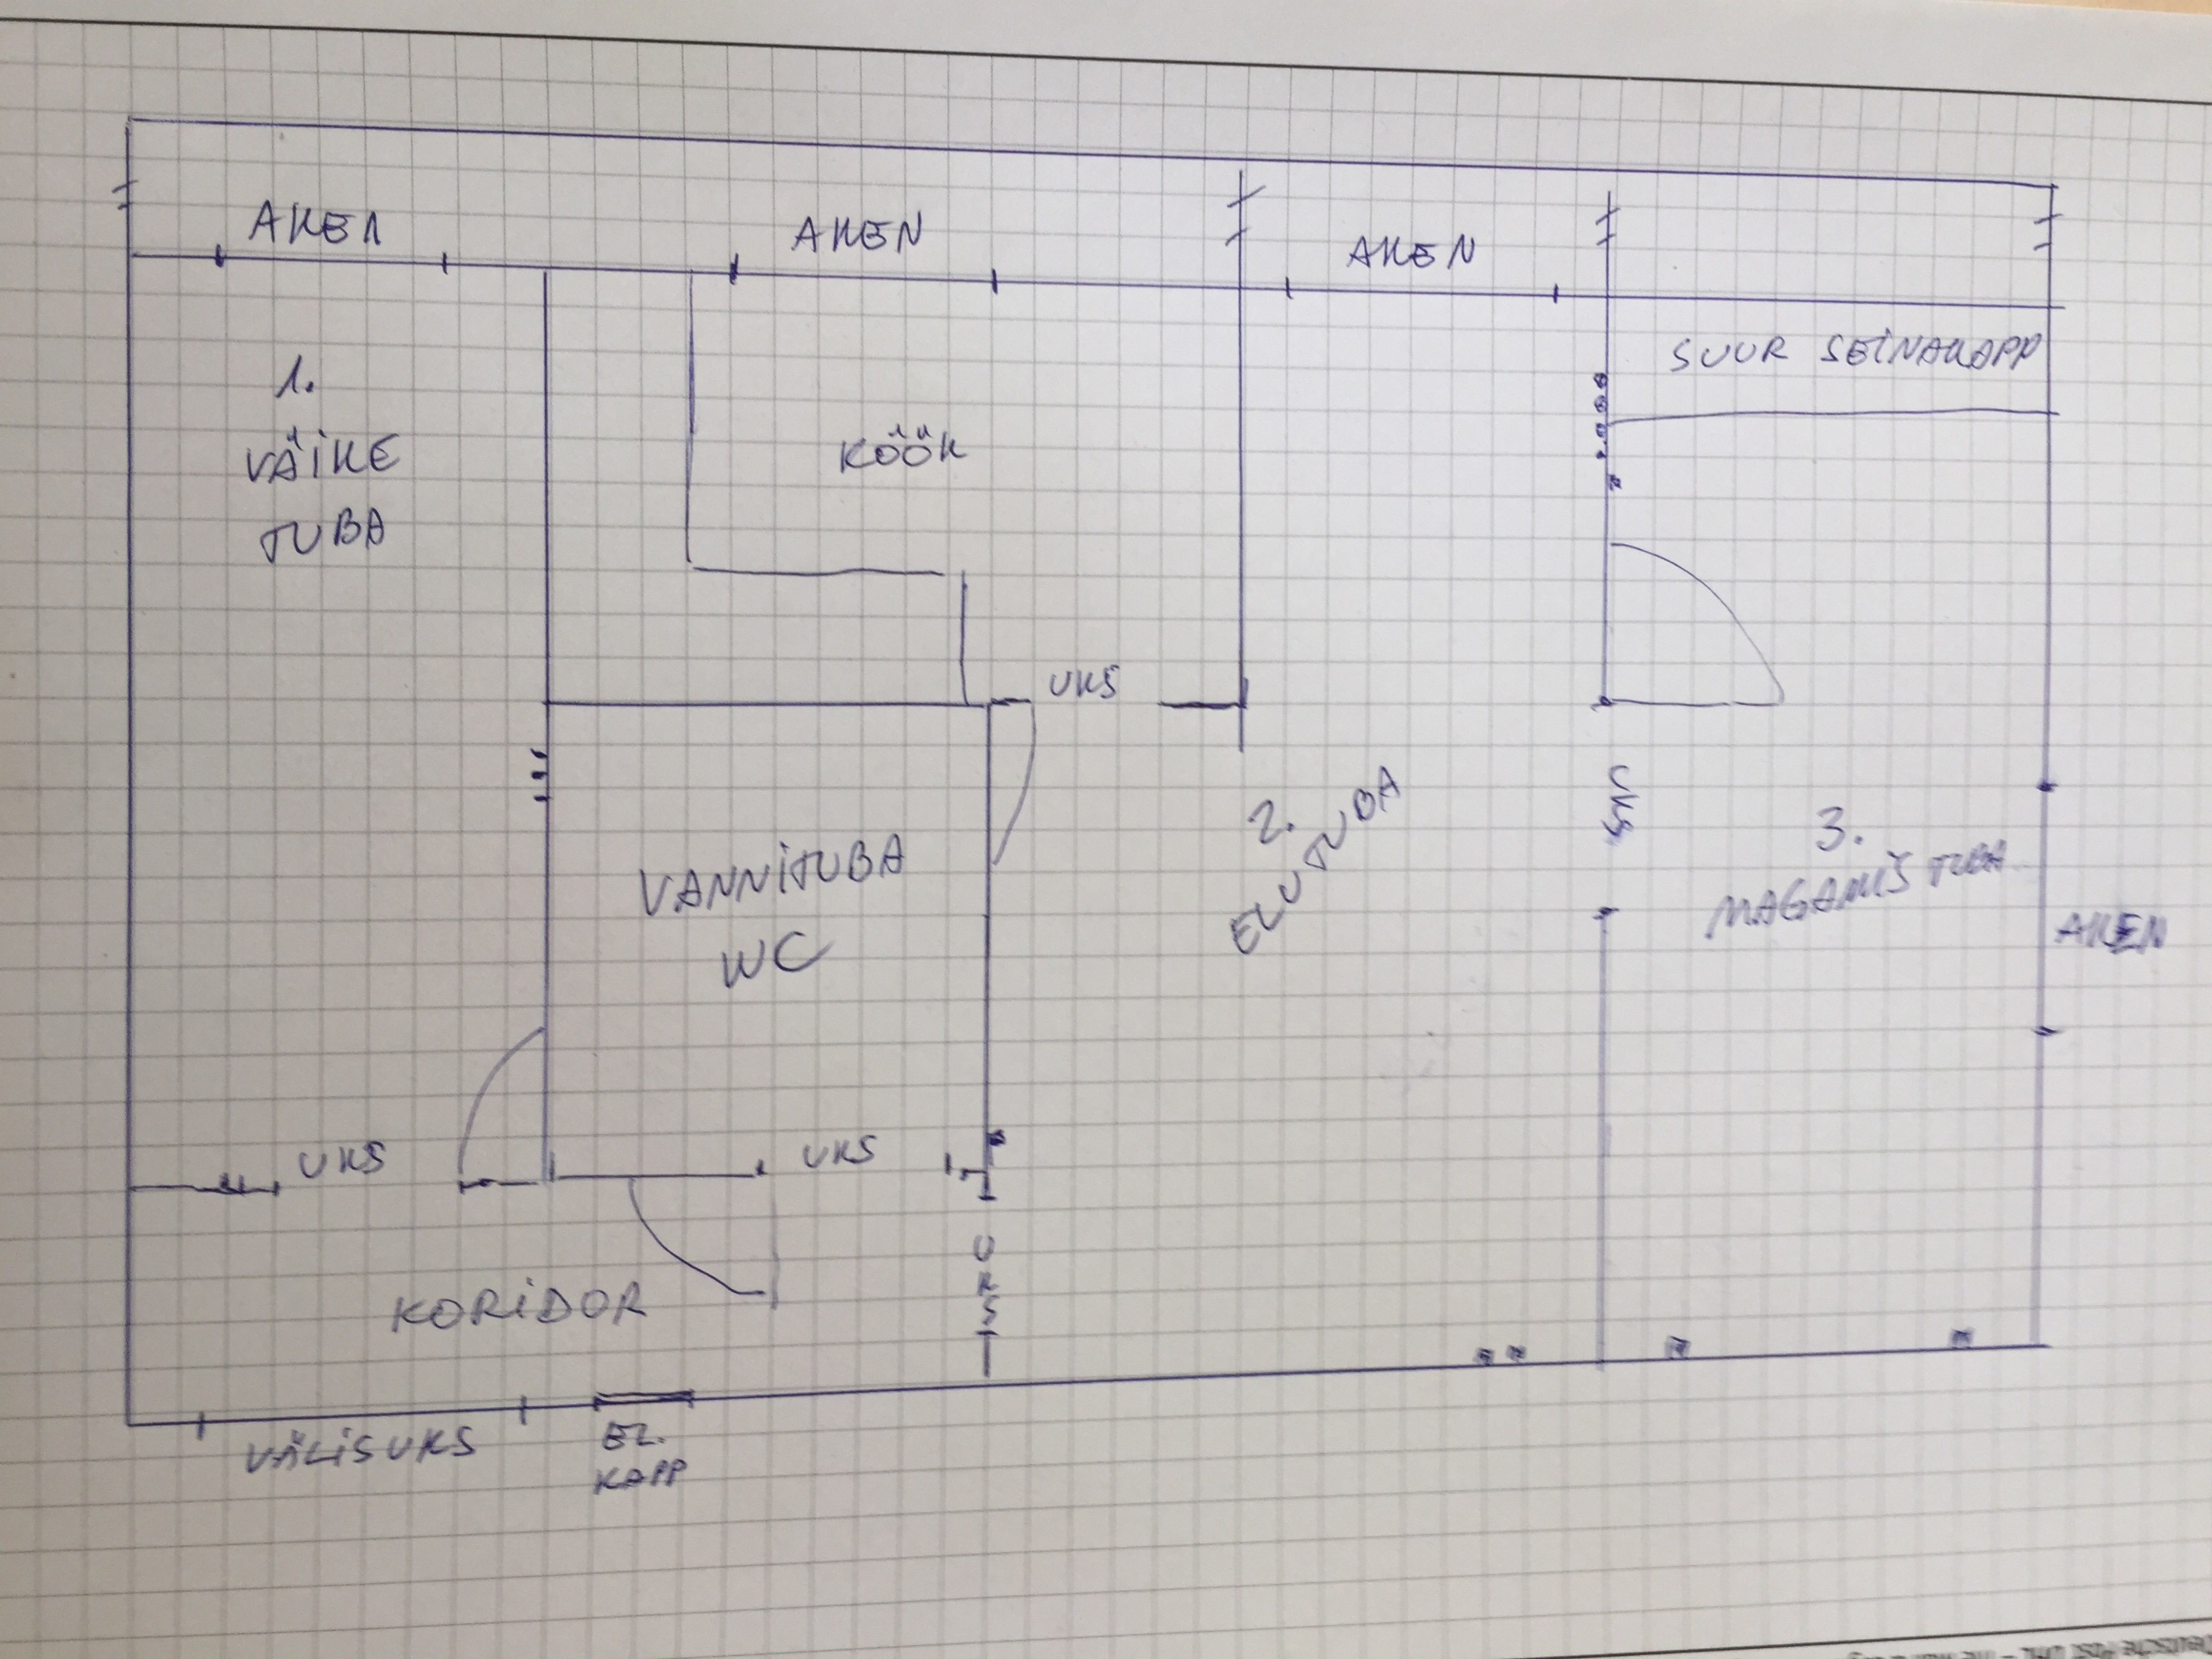 AKEN
AKEN
AKEN
SUUR SEINAKAPP
1.
VÄIKE
TUBA
KÖÖK
UKS
2.
ELUTUBA
UKS
3.
MAGAMIS TUBA
AKEN
VANNITUBA
WC
UKS
UKS
UKS
KORIDOR
VÄLISUKS
EL.
KAPP